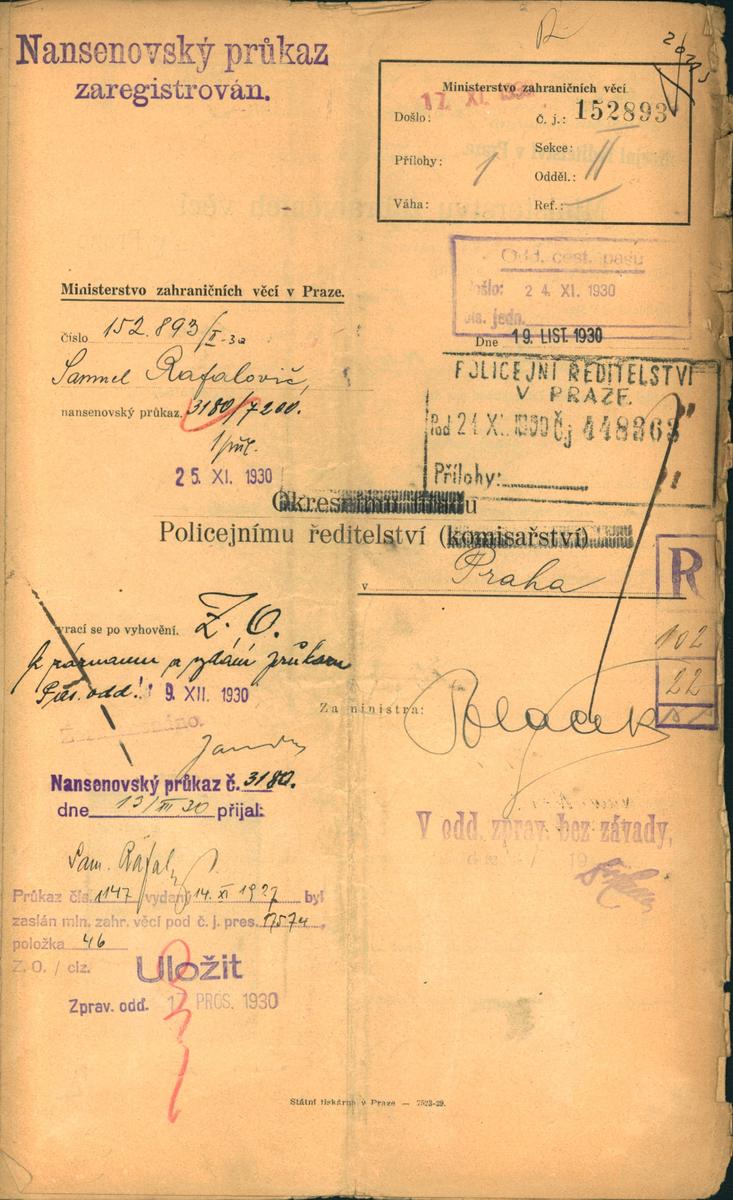 Nansenovský průkaz
zaregistrován.
Ministerstvo zahraničních věcí
17. XI. 1930
Došlo:
č. j.: 152893
Přílohy: 1
Sekce: II
Odděl.:
Váha:
Ref.
Odd. cest. pasů
Došlo: 24. XI. 1930
čís. jedn.
Ministerstvo zahraničních věcí v Praze.
Číslo 152.893/II-30
Dne 19. LIST. 1930
Samuel Rafalovič,
nansenovský průkaz, 3180/7200.
1 příl.
POLICEJNÍ ŘEDITELSTVÍ
V PRAZE.
Pod 24 XI. 1930 Čj 448363
Přílohy:
25. XI. 1930
Okresnímu úřadu
Policejnímu ředitelství (komisařství)
v Praha
R
102
22
vrací se po vyhovění.
Z. O.
k záznamu a vydání průkazu
Pas. odd. 9. XII. 1930
Za ministra:
Zaznamenáno.
Nansenovský průkaz č. 3180.
dne 13/III 30 přijal:
V odd. zprav. bez závady,
Sam. Rafal
Průkaz čís. 1147 vydaný 14. XI 1927 byl
zaslán min. zahr. věcí pod č. j. pres. 17574,
položka 46
Z. O. / ciz.
Uložit
Zprav. odd. 17 PROS. 1930
Státní tiskárna v Praze — 7523-29.